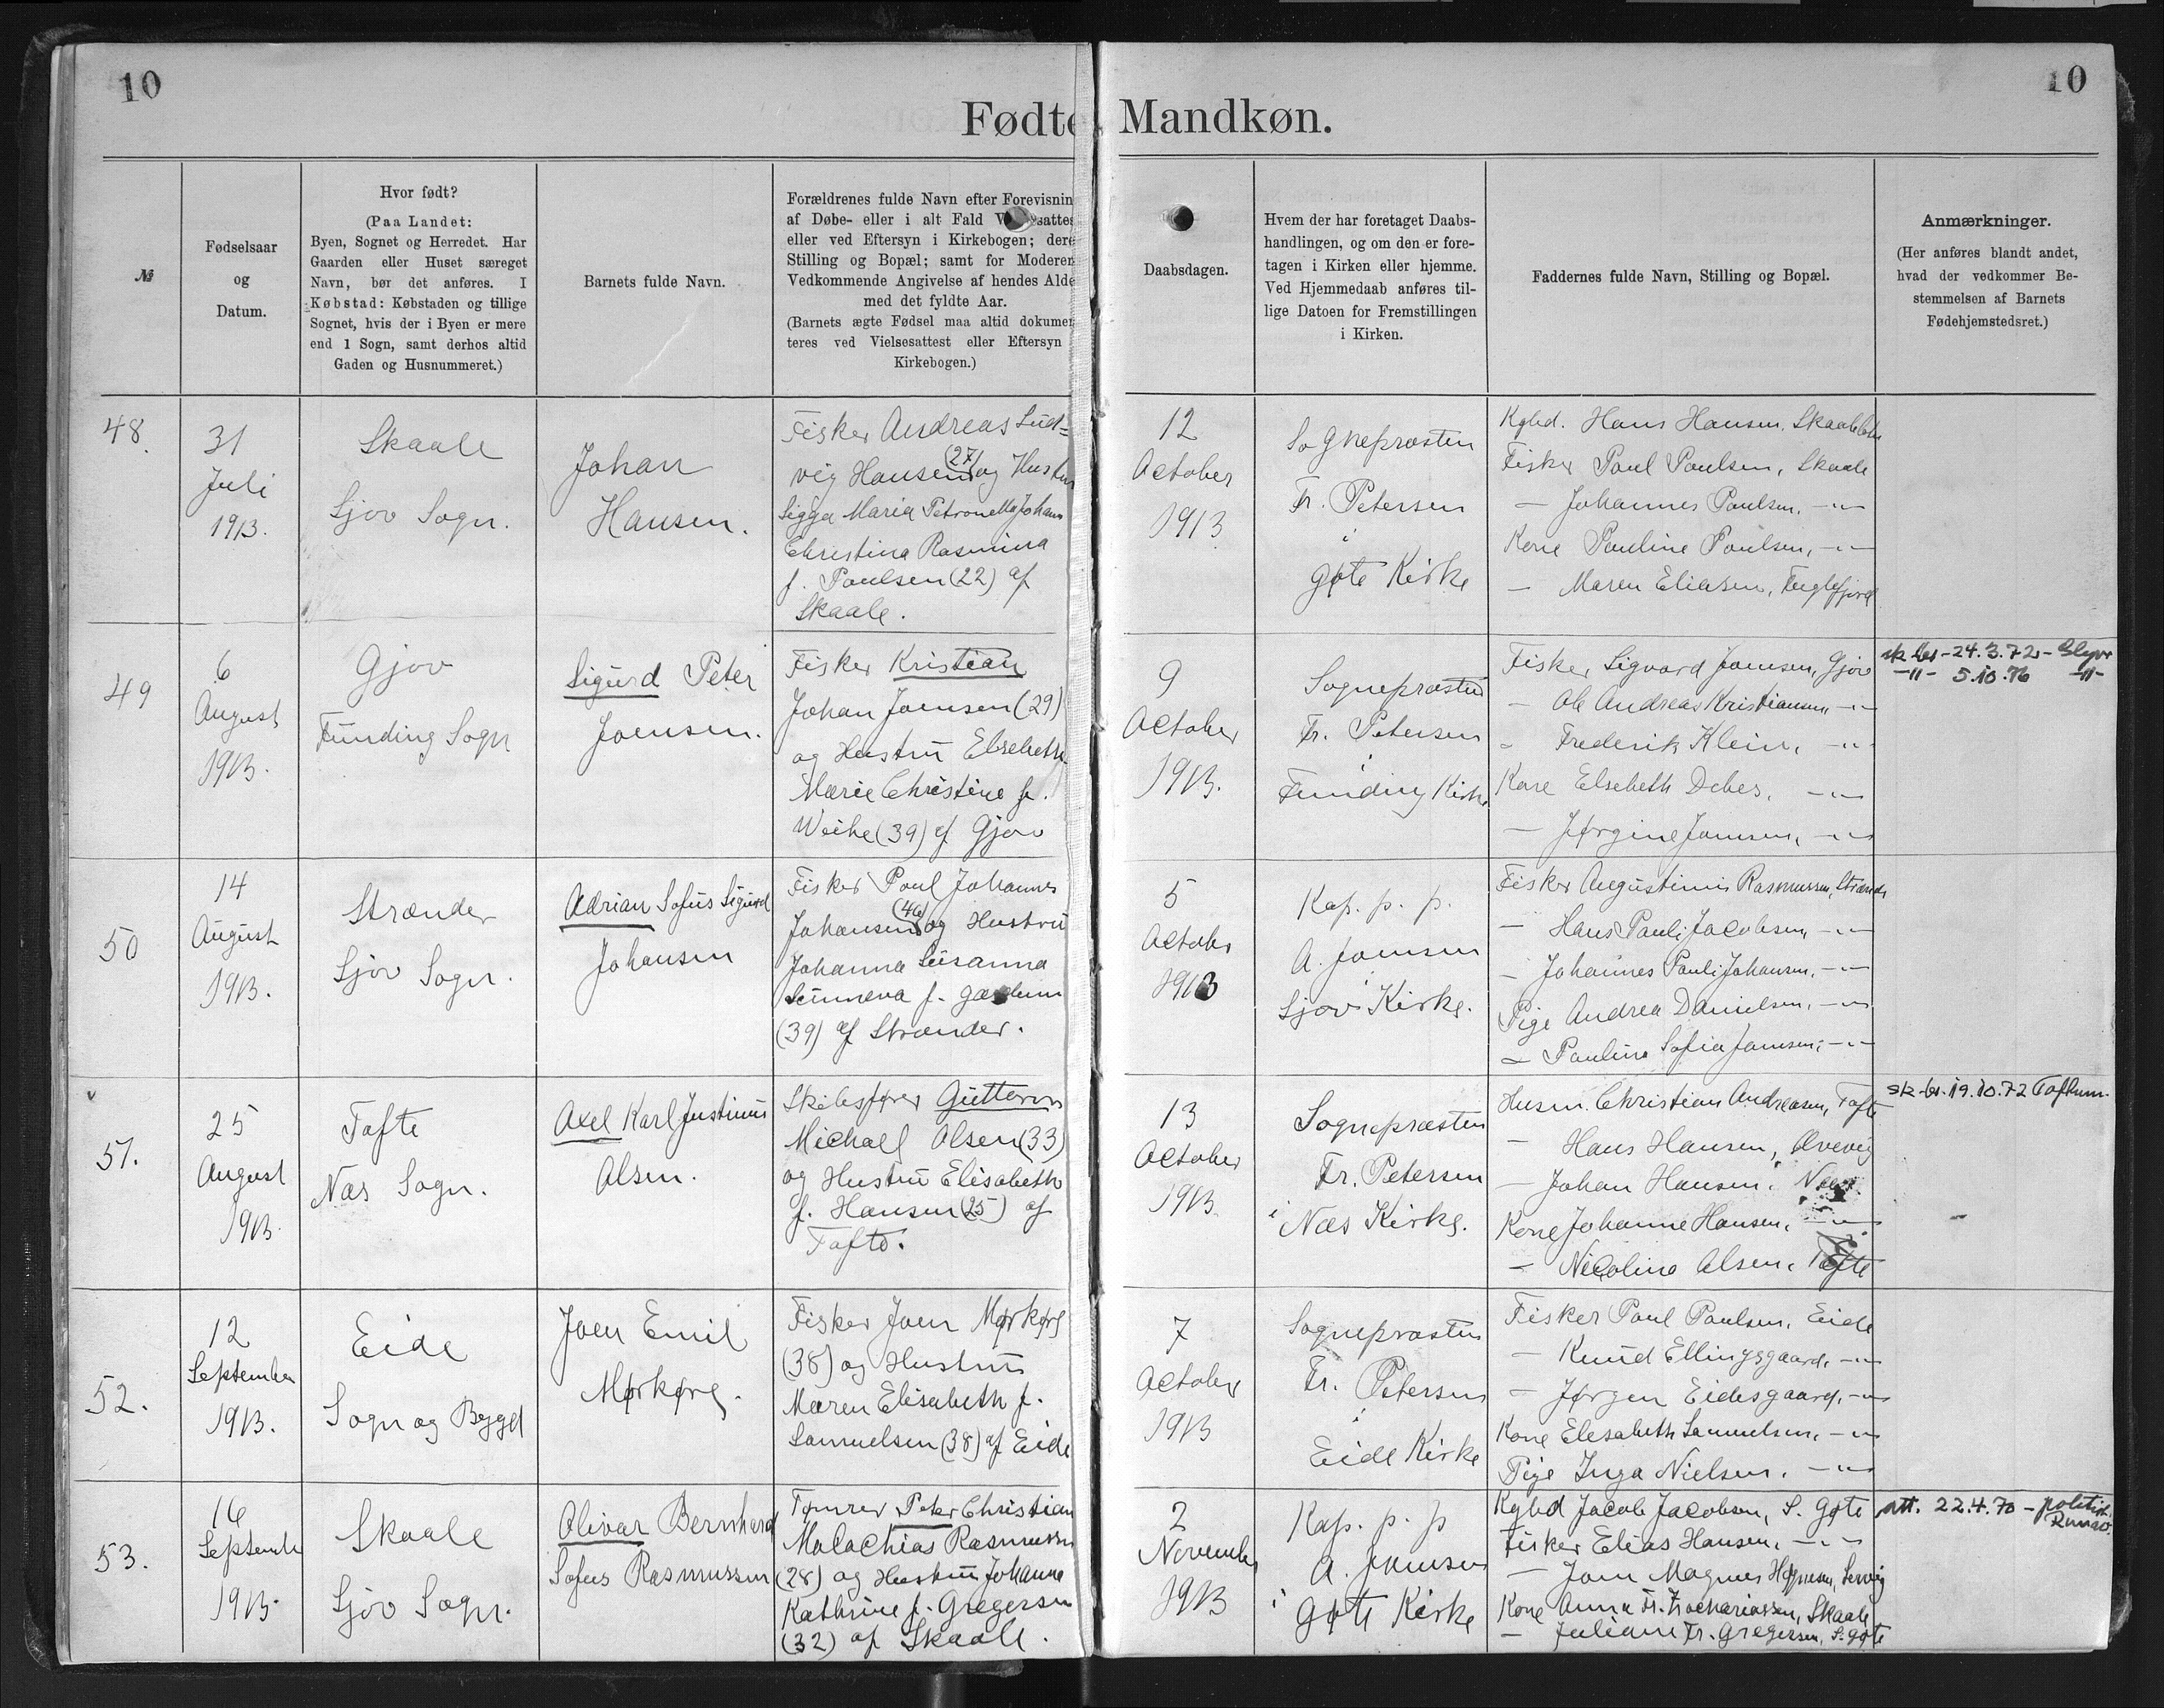 10
10
Fødte Mandkøn.
№
Fødselsaar
og
Datum.
Hvor født?
(Paa Landet:
Byen, Sognet og Herredet. Har
Gaarden eller Huset særeget
Navn, bør det anføres. I
Købstad: Købstaden og tillige
Sognet, hvis der i Byen er mere
end 1 Sogn, samt derhos altid
Gaden og Husnummeret.)
Barnets fulde Navn.
Forældrenes fulde Navn efter Forevisnin
af Døbe- eller i alt Fald
eller ved Eftersyn i Kirkebogen; dere
Stilling og Bopæl; samt for Moderen
Vedkommende Angivelse af hendes Alde
med det fyldte Aar.
(Barnets ægte Fødsel maa altid dokumen
teres ved Vielsesattest eller Eftersyn
Kirkebogen.)
Daabsdagen.
Hvem der har foretaget Daabs-
handlingen, og om den er fore-
tagen i Kirken eller hjemme.
Ved Hjemmedaab anføres til-
lige Datoen for Fremstillingen
i Kirken.
Faddernes fulde Navn, Stilling og Bopæl.
Anmærkninger.
(Her anføres blandt andet,
hvad der vedkommer Be-
stemmelsen af Barnets
Fødehjemstedsret.)
48.
31
Juli
1913.
Skaale
Sjov Sogn.
Johan
Hansen.
Fisker Andreas Lud=
vig Hansen (27) og Hustru
Sigga Maria Petronella Johan
Christina Rasmina
f. Poulsen (22) af
Skaale.
12
October
1913
Sognepræsten
Fr. Petersen
i
Gøte Kirke
Kgbd. Hans Hansen, Skaale
Fisker Poul Poulsen, Skaale
— Johannes Poulsen, -"-
Kone Pauline Poulsen, -"-
— Maren Eliasen, Fuglefjord
49
6
August
1913.
Gjov
Funding Sogn
Sigurd Peter
Joensen.
Fisker Kristian
Johan Joensen (29)
og Hustru Elsebeth
Marie Christine f.
Weihe (39) af Gjov
9
October
1913.
Sognepræsten
Fr. Petersen
i
Funding Kirke
Fisker Sigvard Joensen, Gjov
— Ole Andreas Kristiansen, -"-
— Frederik Klein, -"-
Kone Elsebeth Debes, -"-
— Jørgine Joensen, -"-
sk. br. - 24.3.72 -
-"- 5.10.76 -"-
50
14
August
1913.
Strænder
Sjov Sogn.
Adrian Sofus Sigurd
Johansen
Fisker Poul Johannes
Johansen (46) og Hustru
Johanna Susanna
Sunneva f.
(39) af Strænder.
5
October
1913
Kap. p. p.
A. Joensen
i
Sjov Kirke.
Fisker Augustinus Rasmussen, Strænder
— Hans Pauli Jacobsen, -"-
— Johannes Pauli Johansen, -"-
Pige Andrea Danielsen, -"-
— Pauline Sofia Joensen, -"-
51.
25
August
1913.
Tofte
Næs Sogn.
Axel Karl Justinus
Olsen.
Skibsfører Guttorm
Michael Olsen (33)
og Hustru Elisabeth
f. Hansen (25) af
Tofte.
13
October
1913
Sognepræsten
Fr. Petersen
i Næs Kirke.
Husm. Christian Andreasen, Tofte
— Hans Hansen,
— Johan Hansen, Næs.
Kone Johanne Hansen, -"-
— Nicoline Olsen, Tofte
sk. br. 19.10.72 Toftum.
52.
12
September
1913.
Eide
Sogn og Bygd
Joen Emil
Mørkøre.
Fisker Joen Mørkøre
(38) og Hustru
Maren Elisabeth f.
Samuelsen (38) af Eide
7
October
1913
Sognepræsten
Fr. Petersen
i
Eide Kirke
Fisker Poul Poulsen, Eide
— Knud Ellingsgaard, -"-
— Jørgen Eidesgaard, -"-
Kone Elesabeth Samuelsen, -"-
Pige Inga Nielsen, -"-
53.
16
September
1913.
Skaale
Sjov Sogn.
Olivar Bernhard
Sofus Rasmussen
Tømrer Peter Christian
Malachias Rasmussen
(28) og Hustru Johanne
Kathrine f. Gregersen
(32) af Skaale.
2
November
1913
Kap. p. p
A. Joensen
i Gøte Kirke
Kgbd Jacob Jacobsen, S. Gøte
Fisker Elias Hansen, -"-
— Joen Magnus Høgnesen,
Kone Anna Fr. Zachariassen, Skaale
— Juliane Fr. Gregersen, S. Gøte
att. 22.4.70 - politid.
Runav.